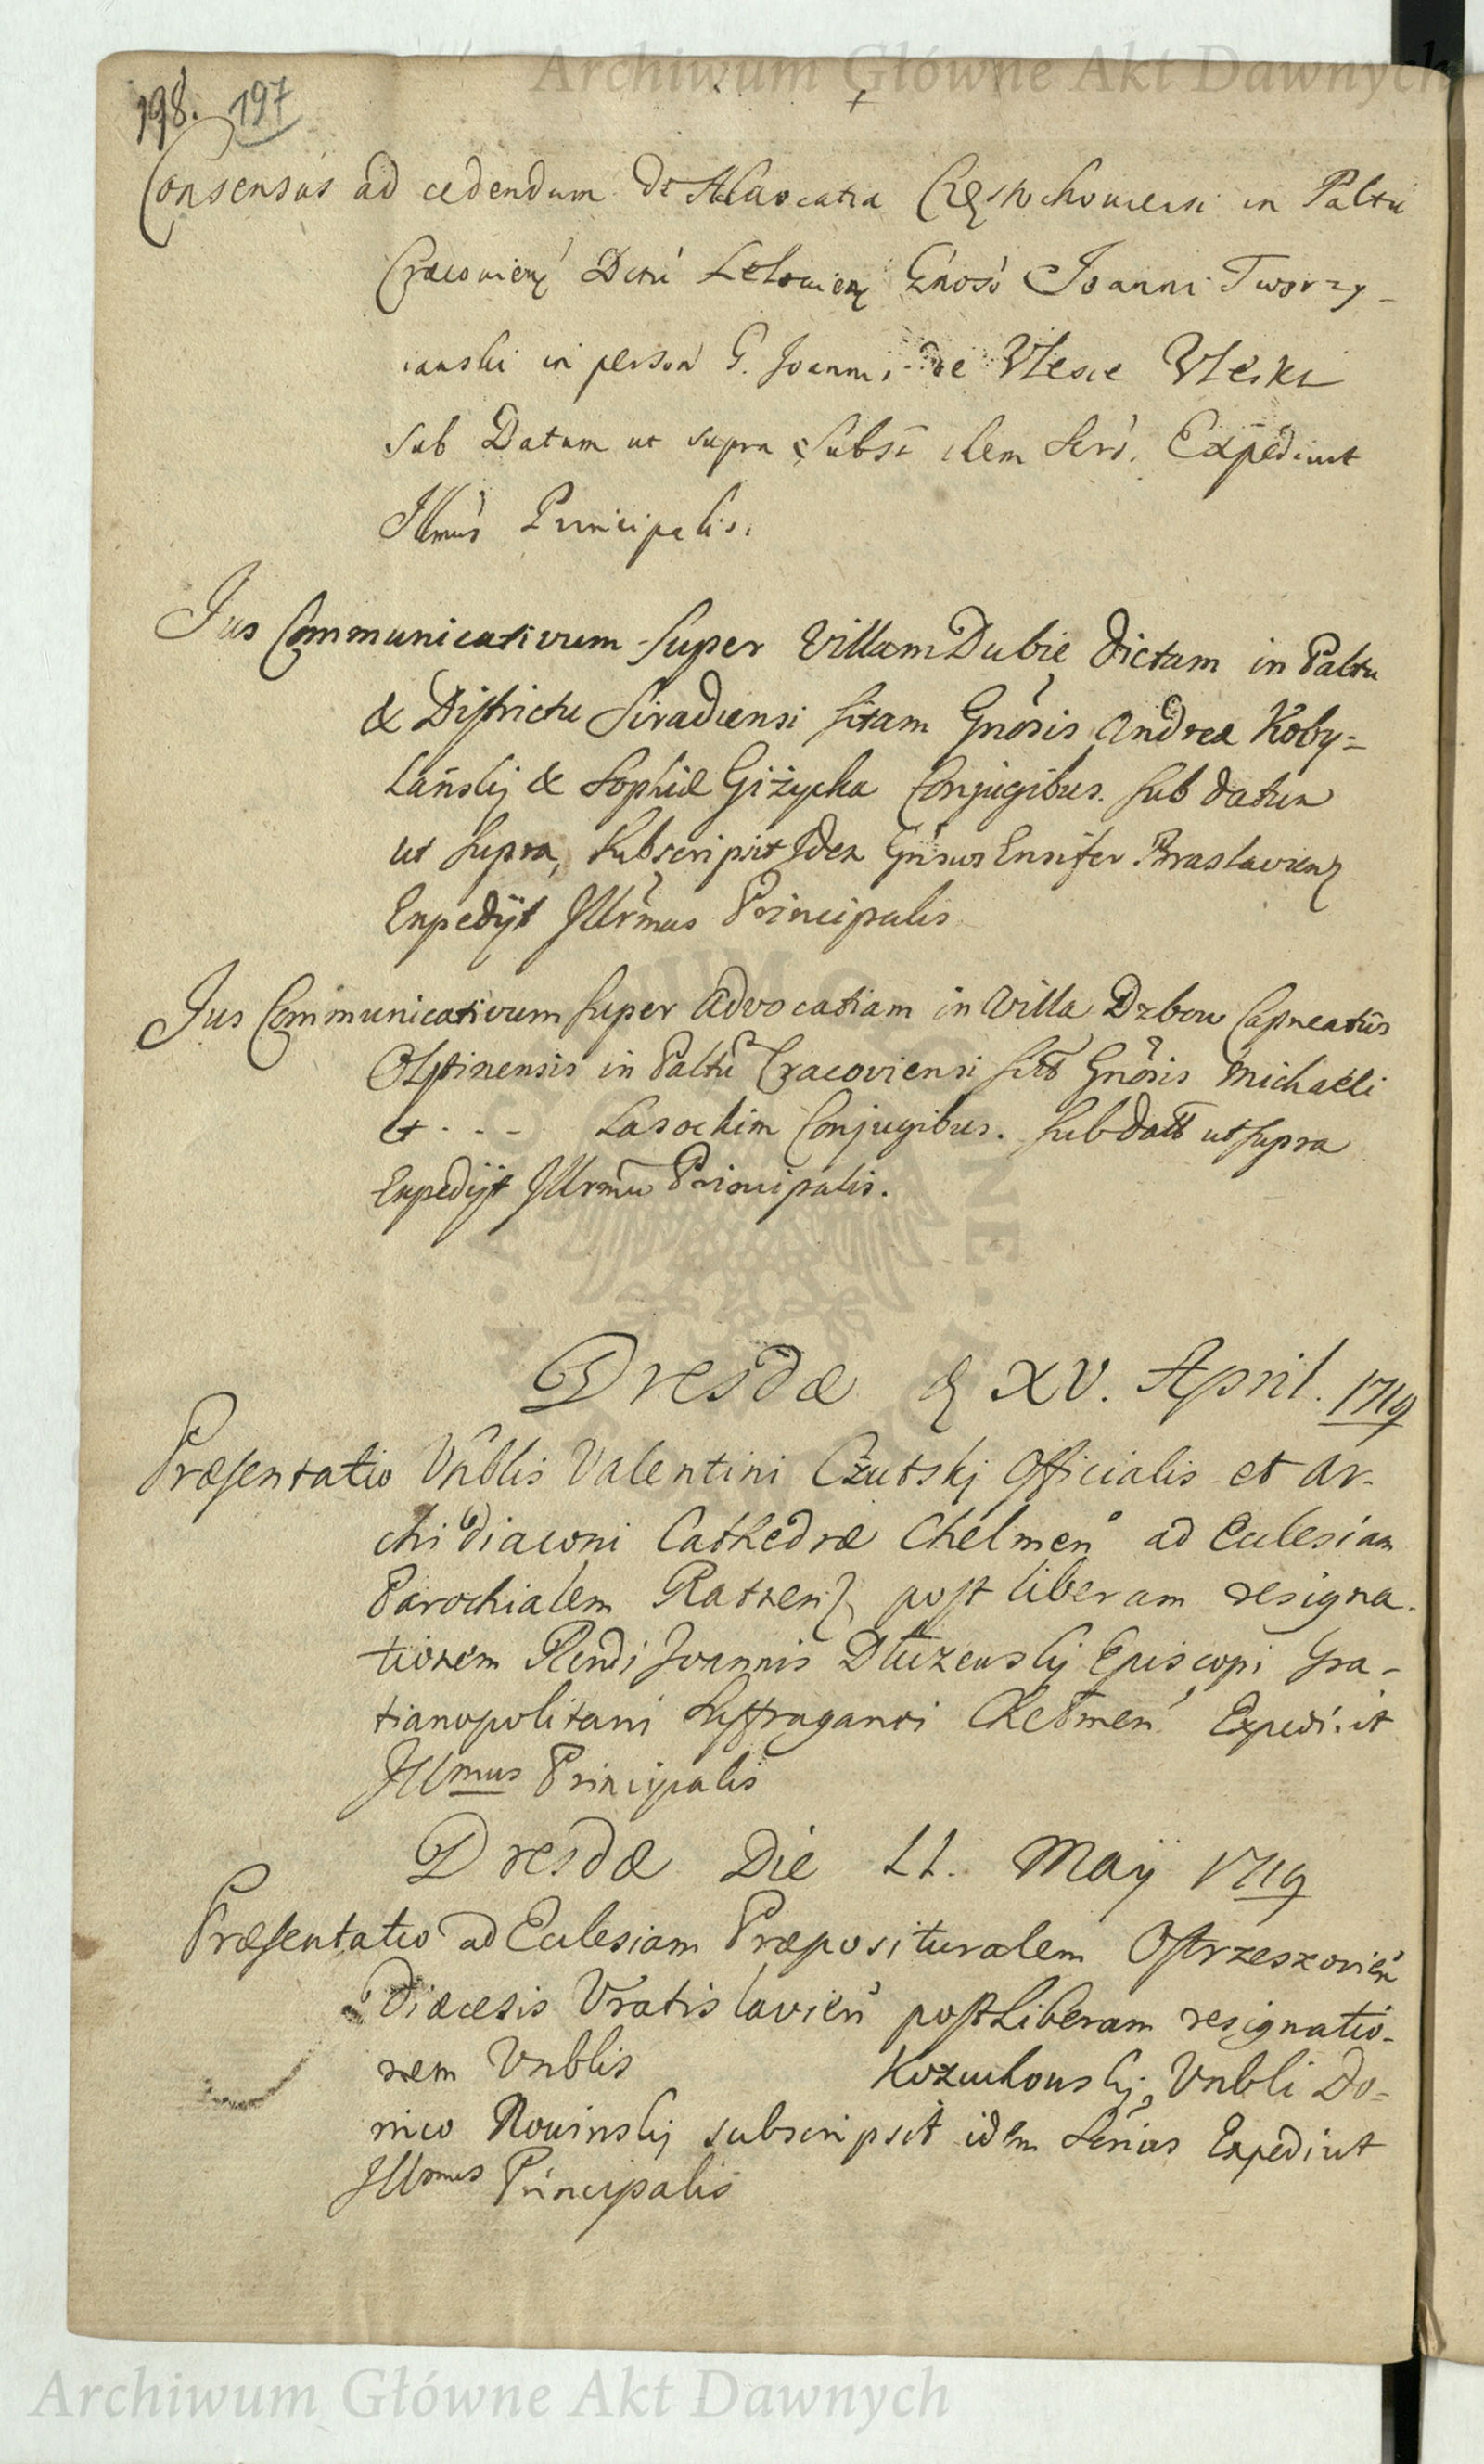 Archiwum Główne Akt Dawnych
198. 197
Consensus ad cedendum de Advocatia Częstochoviensi in Paltu
Cracovien Dctu Lelovien Gnoso Joanni Tworzy-
ianski in person G. Joanni de Wlesie Wleski
Sub Datum ut supra Subst idem Sers. Expediuit
Illmus Principalis.
Jus Communicativum super Villam Dubie dictam in Paltu
& Districtu Siradiensi sitam Gnosis Andreæ Koby=
lański & Sophiæ Giżycka Conjugibus. Sub datum
ut supra, subscripsit Idem Gnsus Ensifer Braslavien
Expedijt Illrmus Principalis
Jus Communicativum super Advocatiam in Villa Dzbow Capneatus
Olstinensis in Paltu Cracoviensi sit Gnosis Michaeli
et . - - Lasockim Conjugibus. Sub datt ut supra
Expedijt Illrmu Principalis.
Dresdæ d XV. April. 1719
Præsentatio Vnblis Valentini Czulski Officialis et Ar-
chidiaconi Cathedræ Chelmen ad Ecclesiam
Parochialem Ratnen post liberam resigna-
tionem Rendi Joannis Dłużewskij Episcopi Gra-
tianopolitani Suffraganei Chełmen Expediuit
Illmus Principalis
Dresdæ Die 11. Maÿ 1719
Præsentatio ad Ecclesiam Præposituralem Ostrzeszovien
Diæcesis Vratislavien post Liberam resignatio-
nem Vnblis Kozuchowskij, Vnbli Do-
nico Rowinskij subscripsit idem Serius Expediuit
Illmus Principalis
Archiwum Główne Akt Dawnych